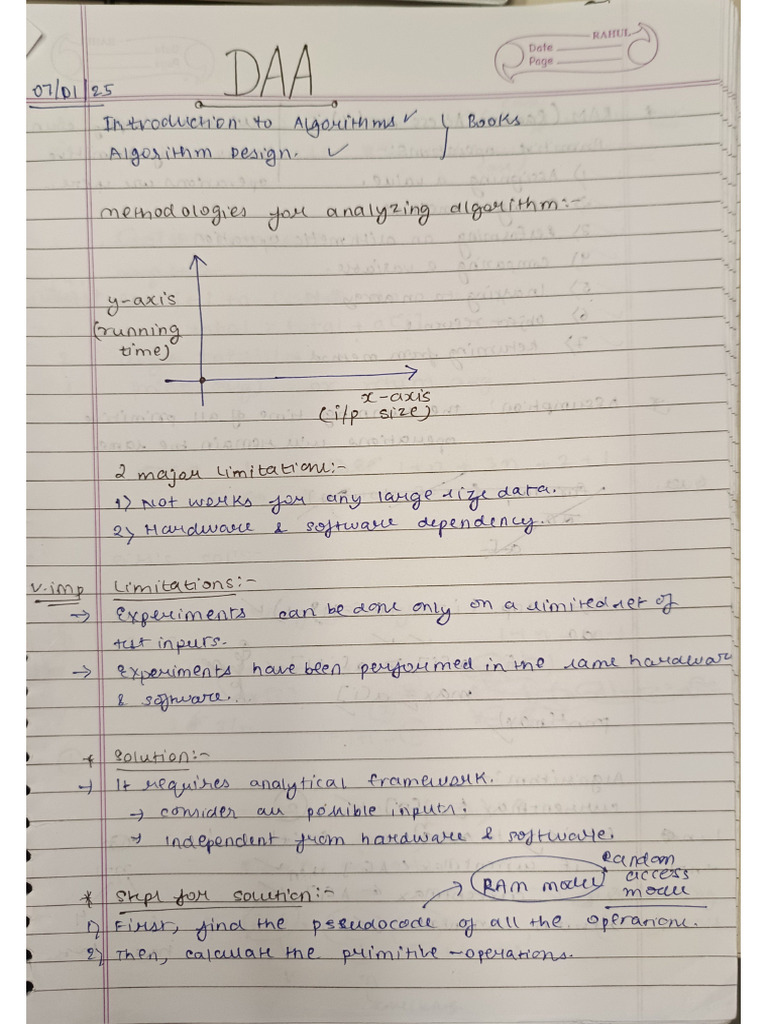 RAHUL
Date
Page
DAA
07/01/25
Introduction to Algorithms ✓ } Books
Algorithm Design. ✓
methodologies for analyzing algorithm:-
y-axis
(running
time)
x-axis
(i/p size)
2 major limitations:-
1) Not works for any large size data.
2) Hardware & software dependency.
V.imp Limitations:-
→ Experiments can be done only on a limited set of
test inputs.
→ Experiments have been performed in the same hardware
& software.
* Solution:-
→ It requires analytical framework.
→ consider all possible inputs.
→ independent from hardware & software.
* Steps for solution:- → RAM model Random
access
model
1) First, find the pseudocode of all the operations.
2) Then, calculate the primitive-operations.